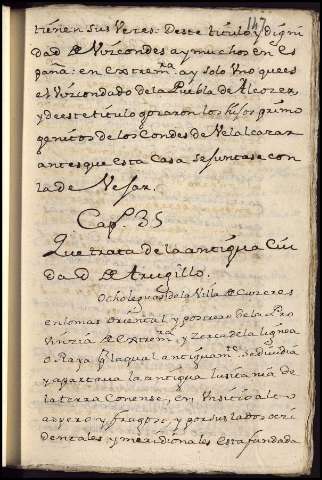 147
tienen sus veces. Deste titulo y digni
dad de Vizcondes ay muchos en Es
paña: en Extrem.ra ay solo vno que es
el Vizcondado de la Puebla de Alcozer,
y de este titulo gozaron los hijos primo
genitos de los Condes de Velalcazar
antes que esta Casa se juntase con
la de Vejar.
Cap.º 35
Que trata de la antigua Ciu
dad de Trugillo.
Ocho leguas de la Villa de Cazeres
en lo mas oriental y postrero de la Pro
vinzia de Extrem.ra y zerca de la linea
o Raya p.r la qual antiguam.te se diuidia
y apartaua la antigua lusitania de
la terra Conense, en vn sitio alto
aspero y fragoso, y por sus lados ocçi
dentales y meridionales esta fundada